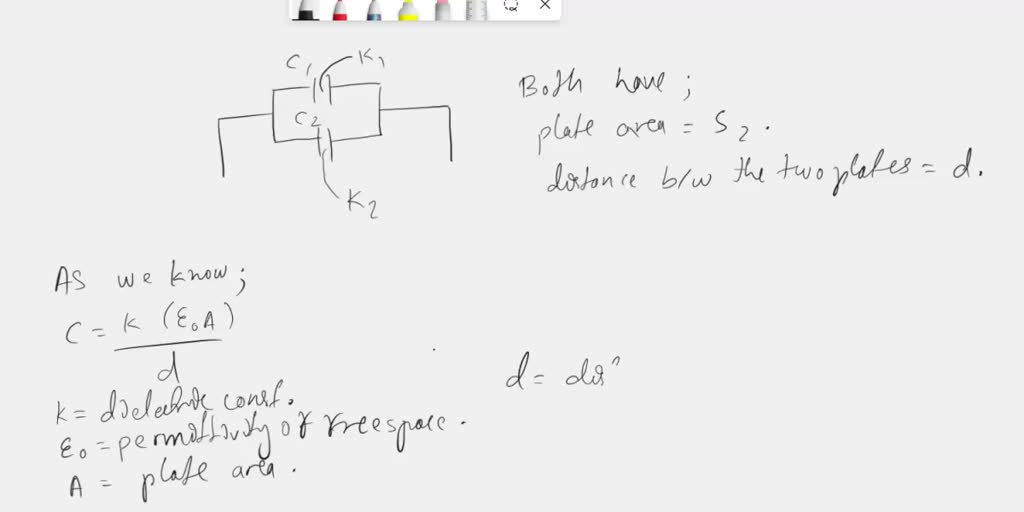 C₁ K₁
C₂
K₂
Both have ;
plate area = S₂ .
distance b/w the two plates = d.
As we know ;
C = K (ε₀A)
d
K = dielectric const.
ε₀ = permittivity of free space .
A = plate area .
d = dis^